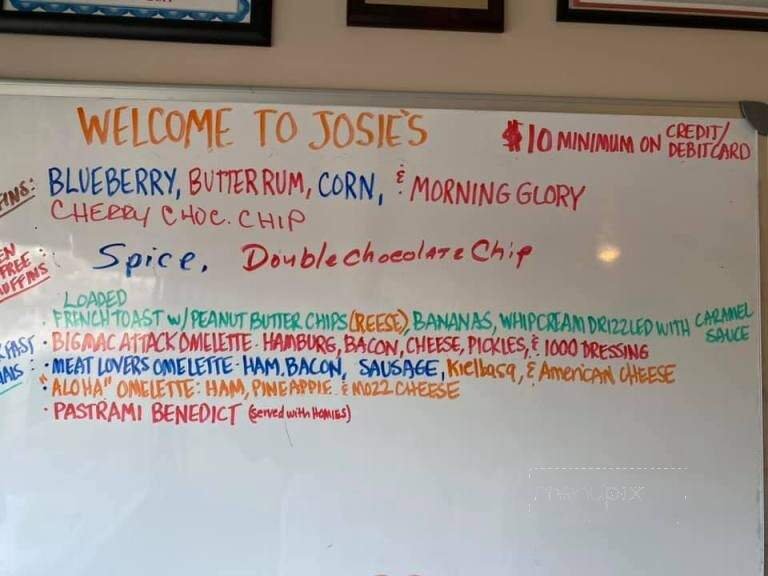 WELCOME TO JOSIE'S
$10 MINIMUM ON CREDIT/
DEBIT CARD
FINS: BLUEBERRY, BUTTER RUM, CORN, & MORNING GLORY
CHERRY CHOC. CHIP
EN
FREE
MUFFINS
: Spice, Double Chocolate Chip
LOADED
FRENCH TOAST W/ PEANUT BUTTER CHIPS (REESE), BANANAS, WHIPCREAM DRIZZLED WITH CARAMEL
SAUCE
KFAST
IALS :
• BIGMAC ATTACK OMELETTE: HAMBURG, BACON, CHEESE, PICKLES, & 1000 DRESSING
• MEAT LOVERS OMELETTE: HAM, BACON, SAUSAGE, Kielbasa, & American CHEESE
• "ALOHA" OMELETTE: HAM, PINEAPPLE & MOZZ CHEESE
• PASTRAMI BENEDICT (served with HOMIES)
menupix